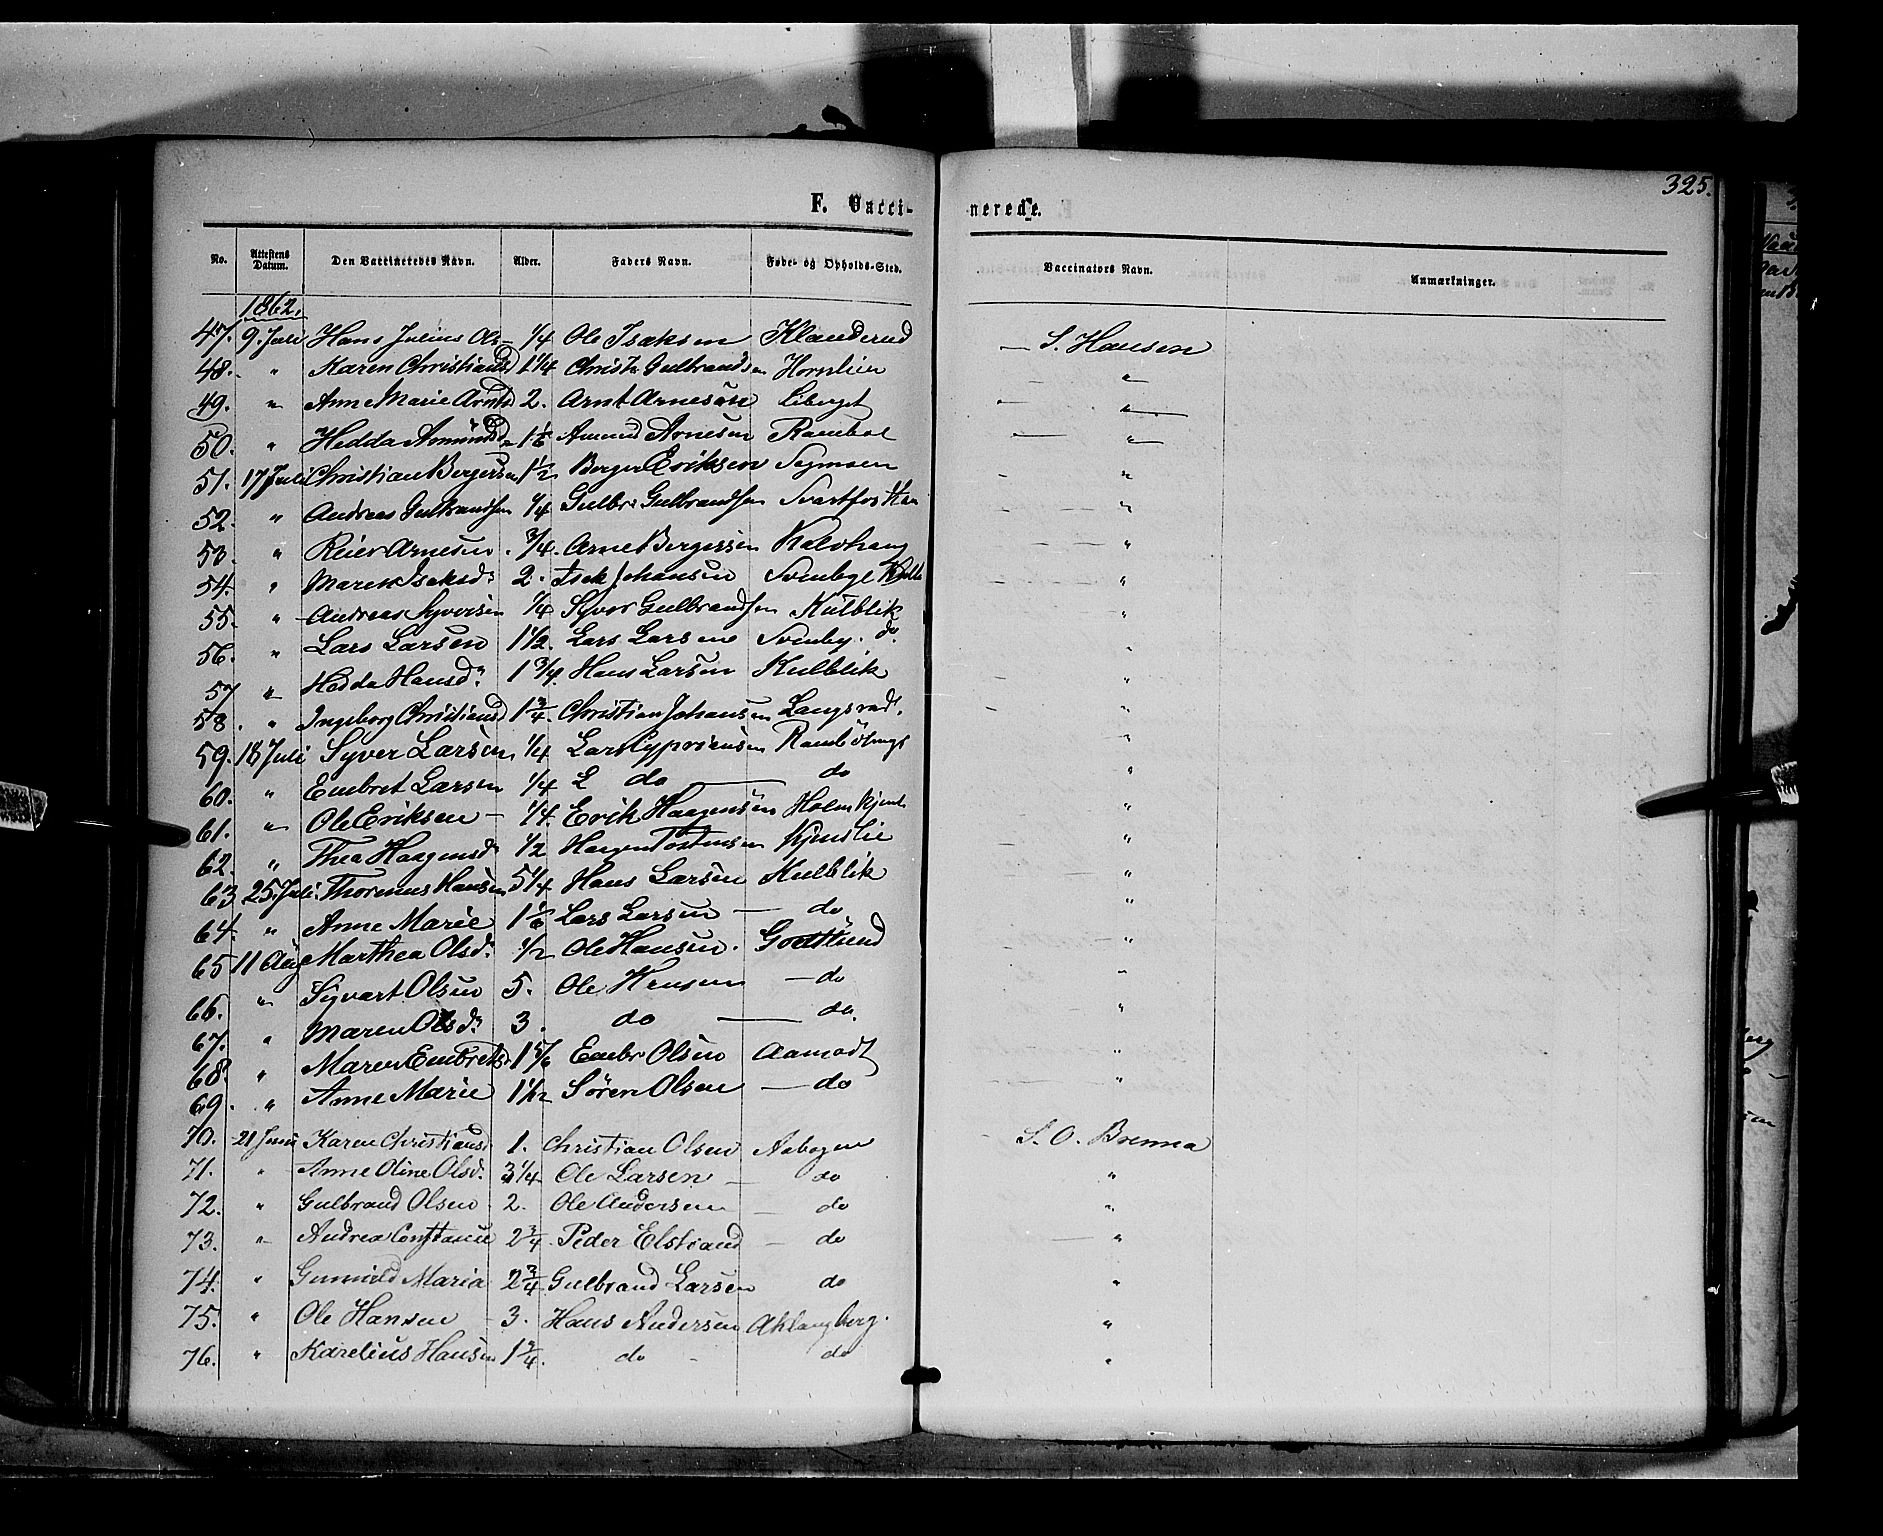 325.
F. Vacci- nerede.
No. Attestens Datum. Den Vaccineredes Navn. Alder. Faders Navn. Føde- og Opholds-Sted. Vaccinators Navn. Anmærkninger.
1862.
47. 9. Juli Hans Julius Ols- 1/4 Ole Isaksen Klanderud — S. Hansen
48. " Karen Christiansd 1 1/4 Christn Gulbrandsen Hornlien — "
49. " Anne Marie Arntsd 2. Arnt Arnesen Liberget — "
50. " Hedda Amundsd 1 1/6 Amund Arnesen — "
51. 17 Juli Christian Bergersen 1 1/2 Berger Eriksen Segmoen "
52. " Andreas Gulbrandsen 1/4 Gulbr. Gulbrandsen "
53. " Reier Arnesen. 3/4. Arne Bergersen Kalvhaug "
54. " Maren Isaksd: 2. Isak Johansen "
55. " Andreas Syversen 1/4 Syver Gulbrandsen Kulblik "
56. " Lars Larsen 1 1/2. Lars Larsen Svenby. do. "
57 " Hedda Hansd: 1 3/4. Hans Larsen Kulblik "
58. " Ingeborg Christiansd 1 3/4. Christian Johansen Langsrud. "
59. 18 Juli Syver Larsen 1/4 Lars Cypriansen "
60. " Embret Larsen 1/4 L do — do "
61. " Ole Eriksen - 1/4. Erik Haagensen "
62. " Thea Haagensd 1/2 Haagen Tostensen Kjenslie "
63 25. Juli. Thorenus Hansen 5 1/4 Hans Larsen Kulblik "
64. " Anne Marie 1 1/6 Lars Larsen — do "
65 11 Aug Marthea Olsd: 1/2 Ole Hansen. Goutlund "
66. " Sigvart Olsen 5. Ole Hansen — do "
67. " Maren Olsd: 3. do — do. "
68. " Maren Embretsd 1 5/6 Embr Olsen Aamodt "
69. " Anne Marie 1 1/12 Sören Olsen — do "
70. 21 Juni Karen Christiansd. 1. Christian Olsen Aabogen S. O. Brenna
71. " Anne Oline Olsd. 3 1/4 Ole Larsen — do "
72. " Gulbrand Olsen 2. Ole Andersen — do "
73. " Andrea Constance 2 3/4. Peder Elstrand — do "
74. " Gunnild Maria 2 3/4 Gulbrand Larsen do "
75. " Ole Hansen - 3. Hans Andersen Aklangberg. "
76. " Karelius Hansen 1 3/4. do - do "